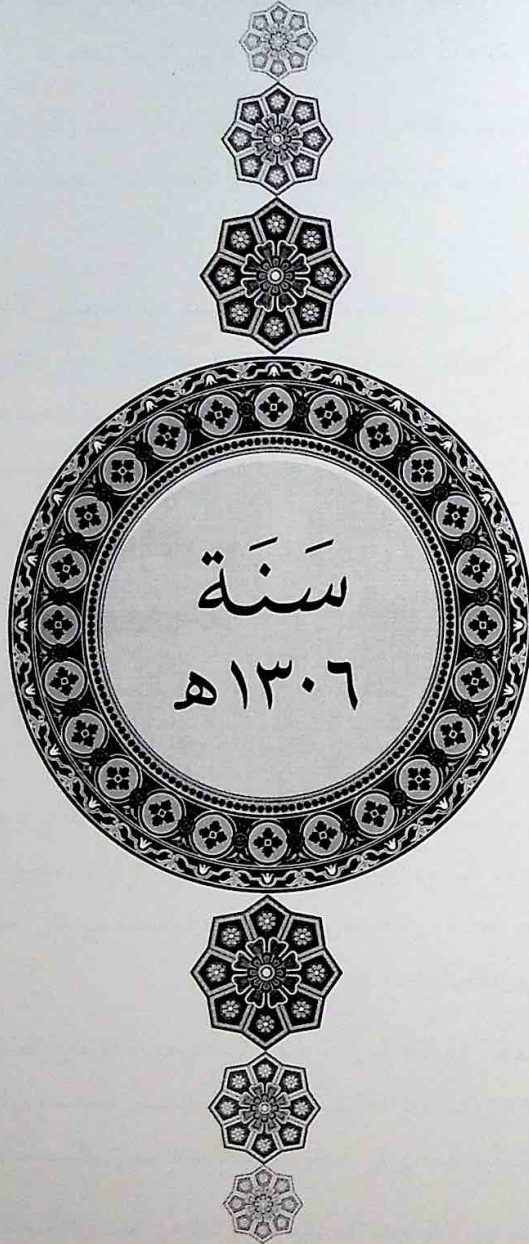 سَنَة
١٣٠٦ه